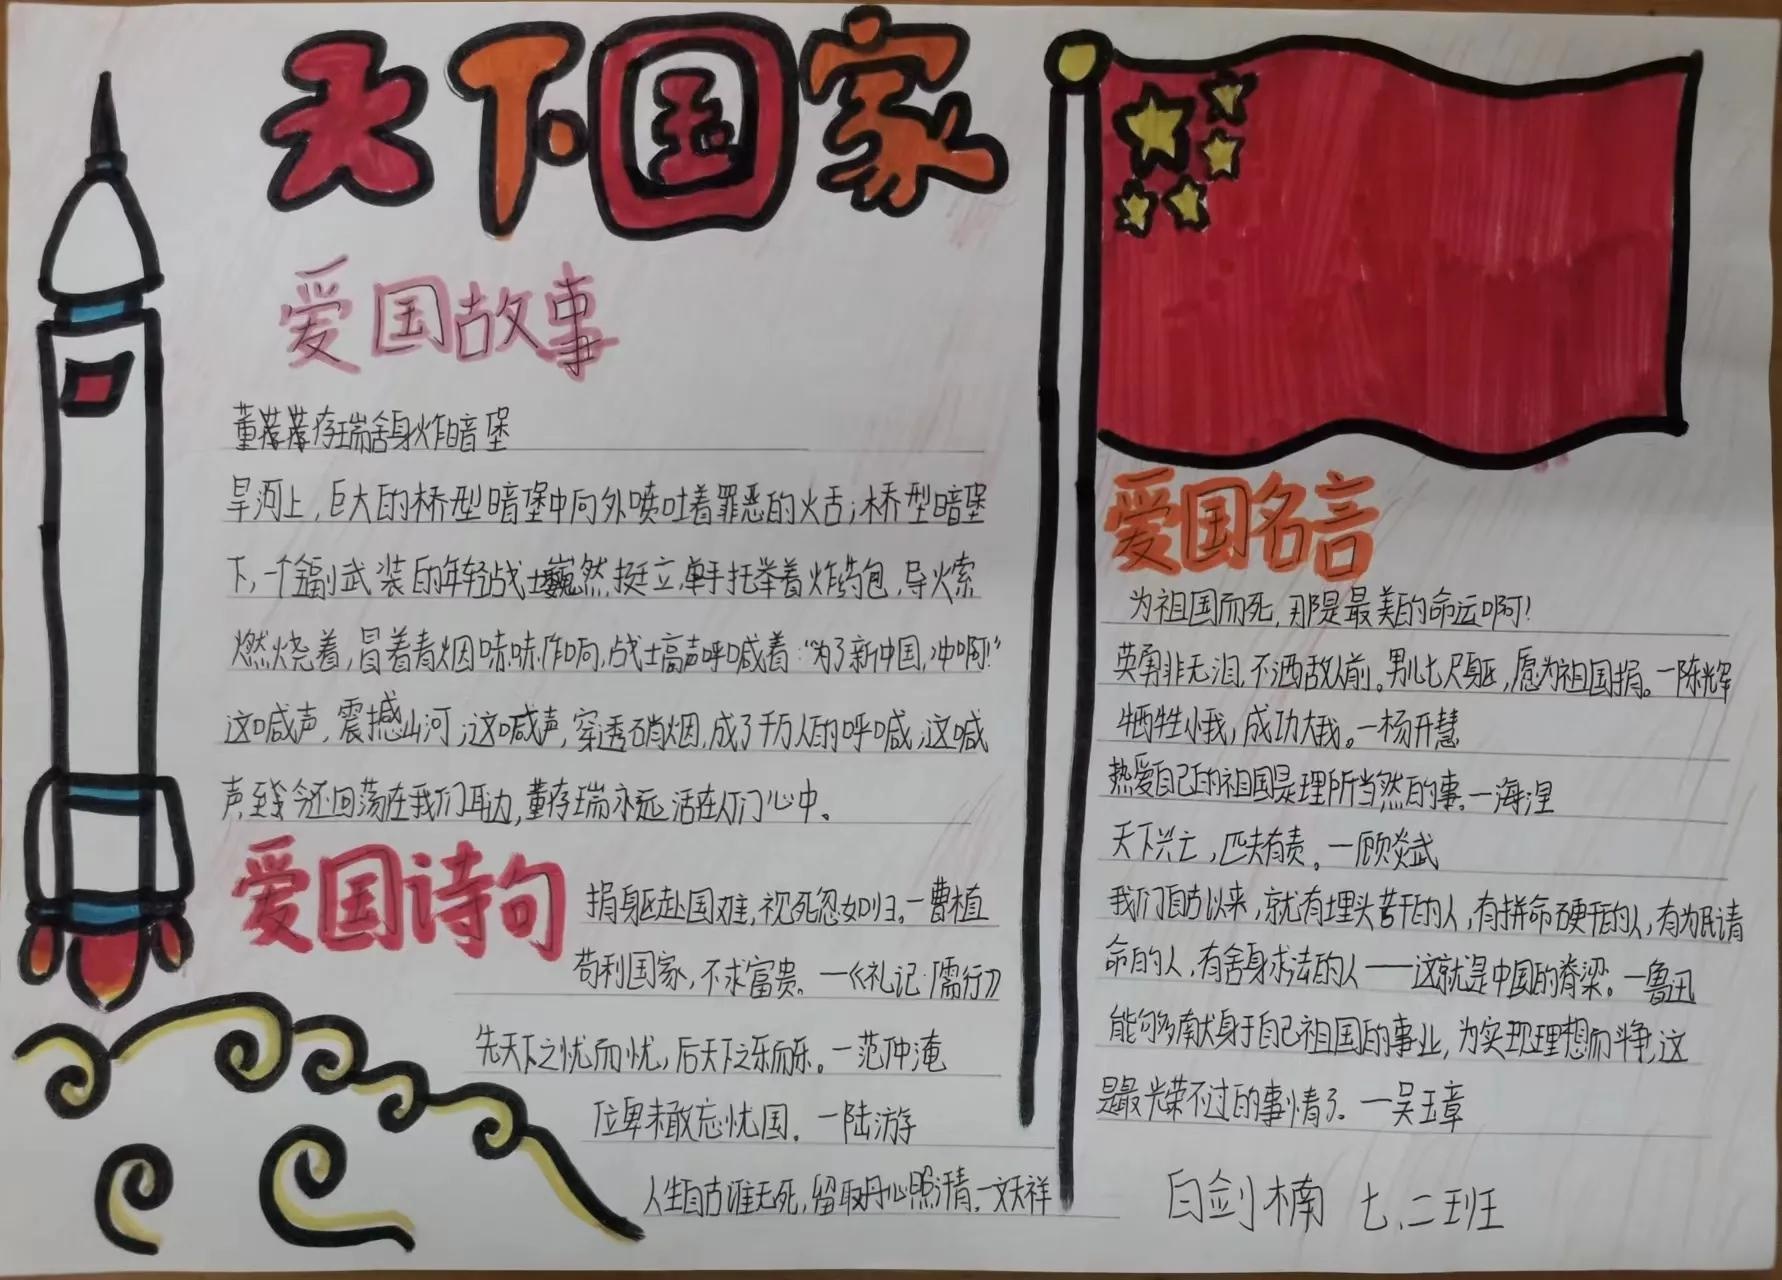 天下国家
爱国故事
董存瑞舍身炸暗堡
旱河上，巨大的桥型暗堡中向外喷吐着罪恶的火舌；桥型暗堡
下，一个全副武装的年轻战士巍然挺立，单手托举着炸药包，导火索
燃烧着，冒着青烟咝咝作响，战士高声呼喊着："为了新中国，冲啊！"
这喊声，震撼山河；这喊声，穿透硝烟，成了千万人的呼喊，这喊
声至今还回荡在我们耳边，董存瑞永远活在人们心中。
爱国诗句
捐躯赴国难，视死忽如归。—曹植
苟利国家，不求富贵。—《礼记·儒行》
先天下之忧而忧，后天下之乐而乐。—范仲淹
位卑未敢忘忧国。—陆游
人生自古谁无死，留取丹心照汗青。—文天祥
爱国名言
为祖国而死，那是最美的命运啊！
英勇非无泪，不洒敌人前。男儿七尺躯，愿为祖国捐。—陈辉
牺牲小我，成功大我。—杨开慧
热爱自己的祖国是理所当然的事。—海涅
天下兴亡，匹夫有责。—顾炎武
我们自古以来，就有埋头苦干的人，有拼命硬干的人，有为民请
命的人，有舍身求法的人——这就是中国的脊梁。—鲁迅
能够献身于自己祖国的事业，为实现理想而斗争，这
是最光荣不过的事情了。—吴玉章
白剑楠 七.二班